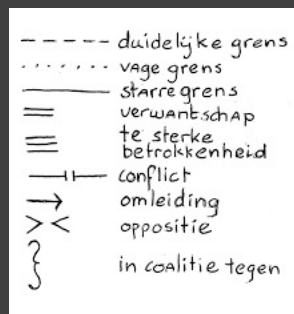 duidelijke grens
vage grens
starre grens
verwantschap
te sterke
betrokkenheid
conflict
omleiding
oppositie
in coalitie tegen